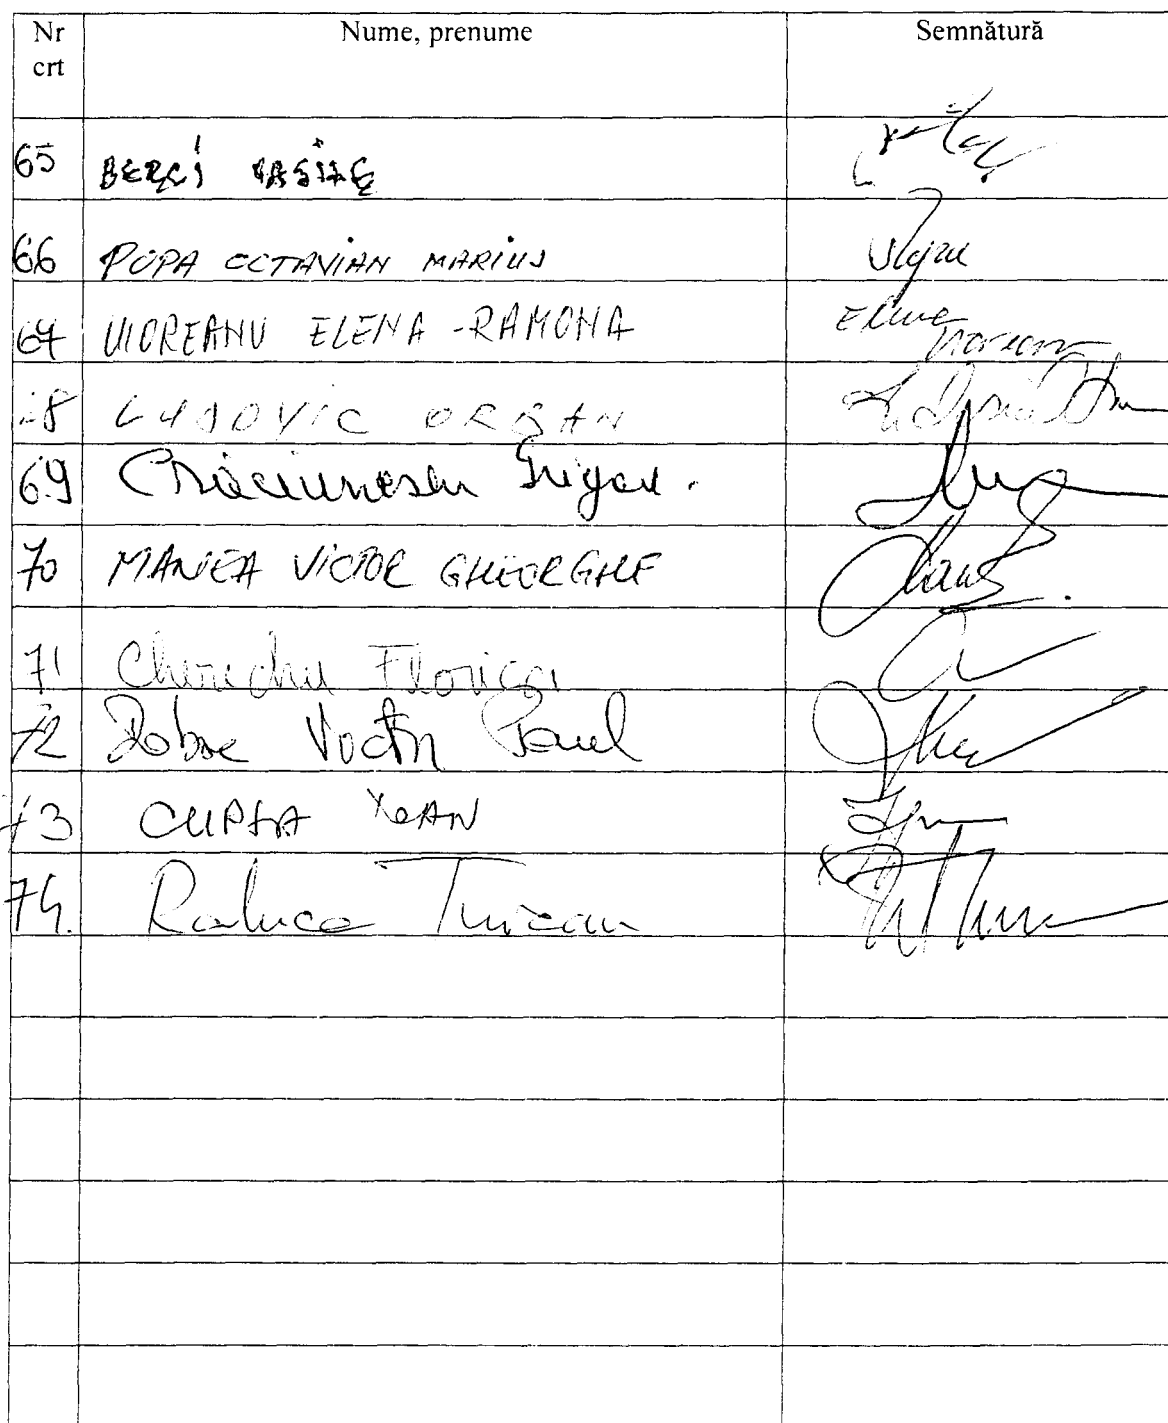 Nr crt Nume, prenume Semnătură
65 BERCI VASILE
66 POPA OCTAVIAN MARIUS
67 VIOREANU ELENA-RAMONA Elena
68 LUDOVIC ORBAN
69 Crăciunescu Grigore.
70 MANEA VICTOR GHEORGHE
71 Cherechu Florica
72 Dobre Victor Paul
73 CUPȘA IOAN
74. Raluca Turcan